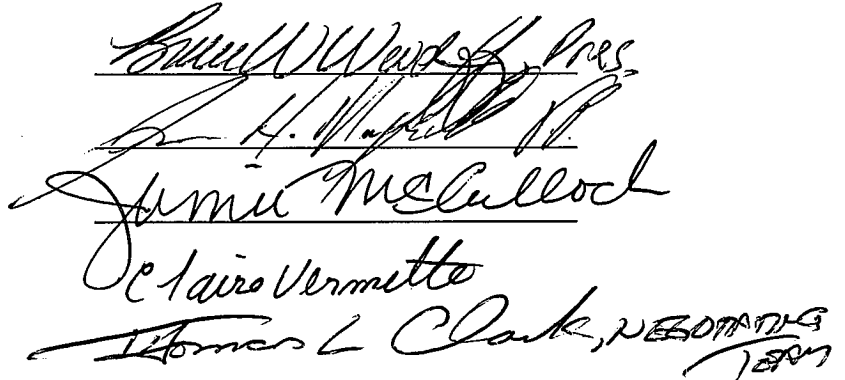 W. Pres.
H. V.P.
Jamie McCulloch
Claire Vermette
Thomas L Clark, NEGOTIATING
TEAM